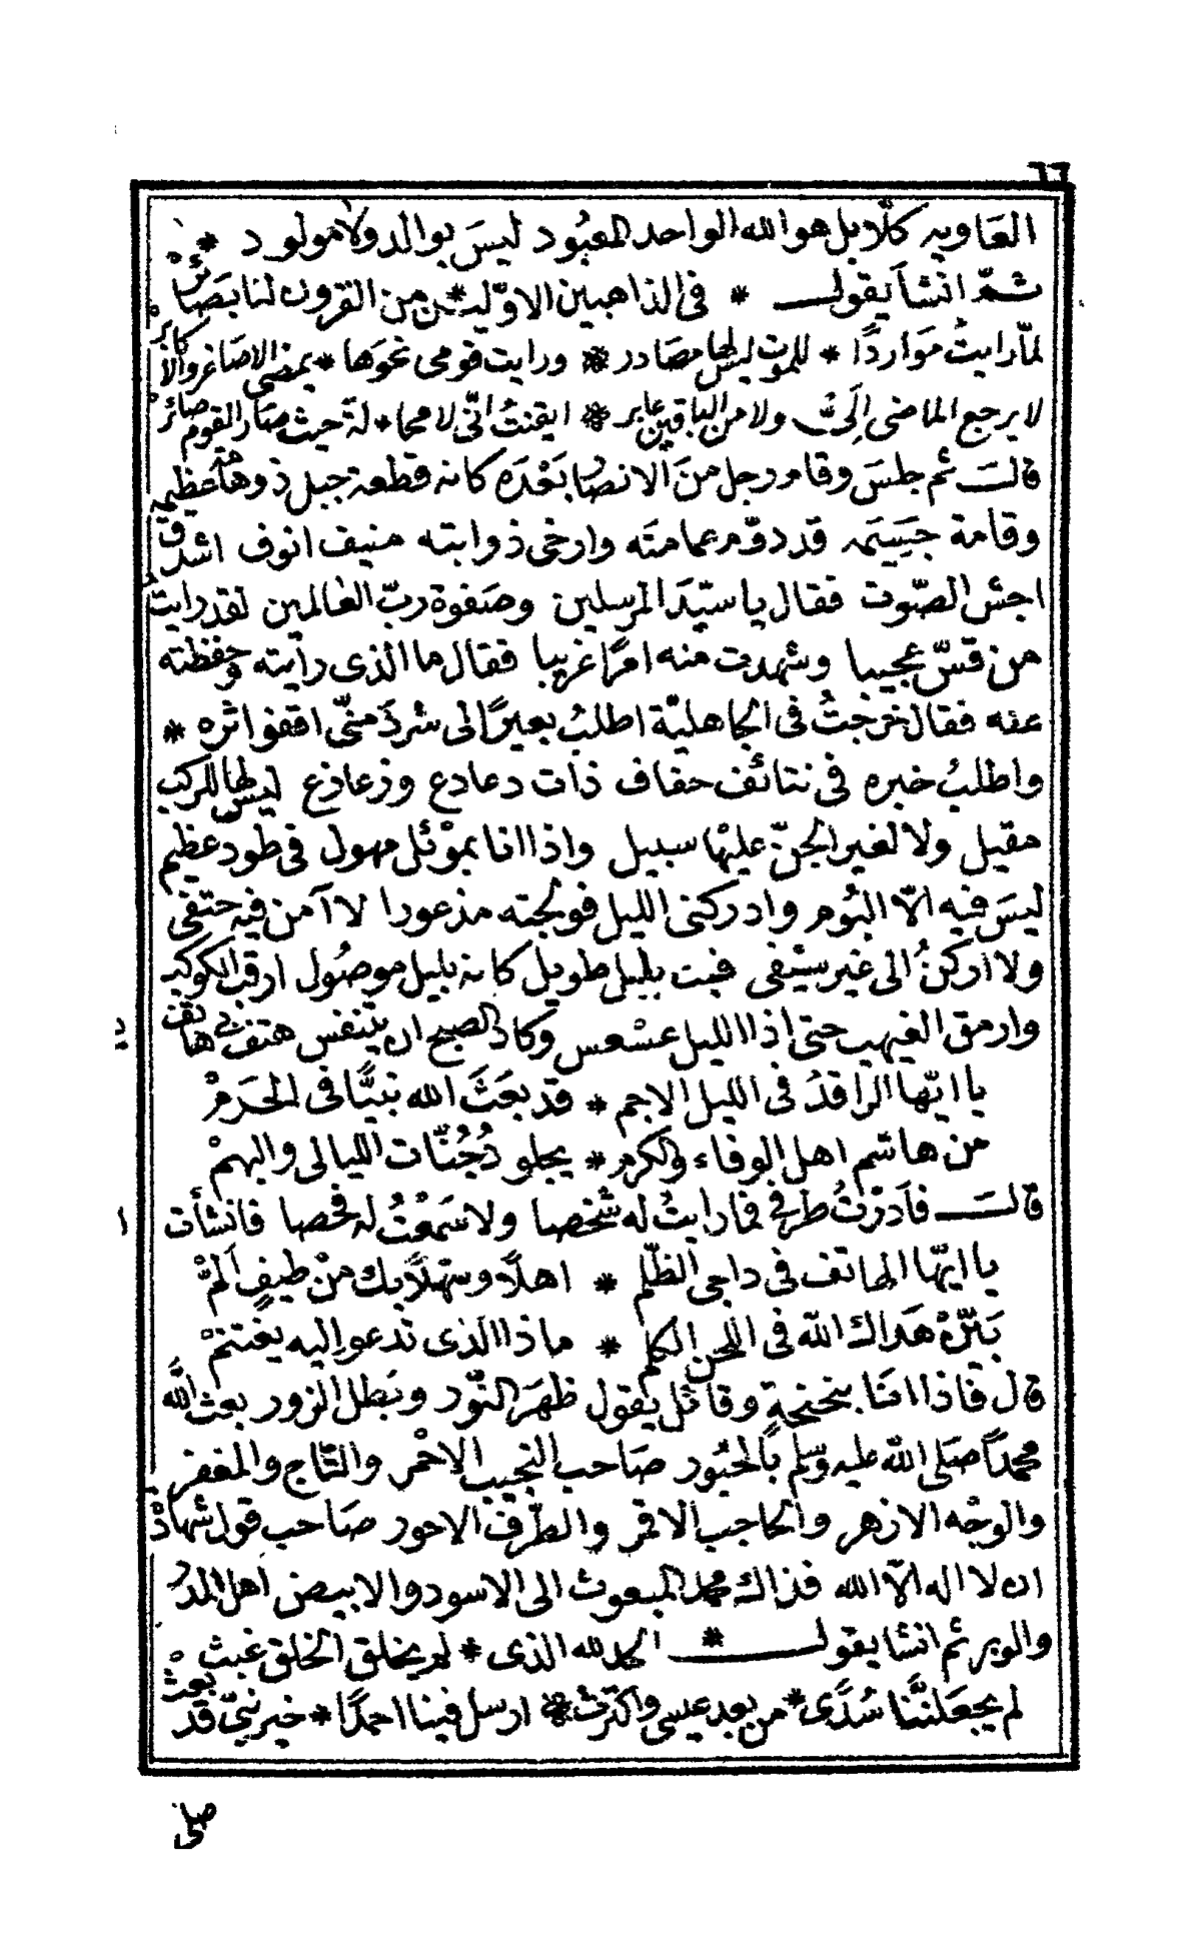 ٦٦
العاويه كلّا بل هو الله الواحد المعبُود ليسَ بوالد ولا مولود *
ثمّ انشأ يقول * فى الذاهبين الاوّلين * من القرون لنا بصَائرْ
لمّا رايتُ مَوَاردًا * للموت ليس لها مصَادر * ورايت قومى نحوَها * يمضى الاصَاغر والاكابرْ
لا يرجع الماضى اِلَىَّ ولا من الباقين غابر * ايقنتُ انّى لا محا * لةَ حيث صَار القوم صائرْ
قال ثم جلسَ وقام رجل منَ الانصَار بَعْدَه كانه قطعة جبل ذو هامَة عظيمة
وقامة جَسِيَمه قد دوّم عمامتَه وارخى ذوابته منيف انوف اشدق
اجش الصّوت فقال يا سيّدَ المرسلين وصَفوة ربّ العَالمين لقد رايتُ
من قسّ عجيبا وشهدت منه امرًا غريبا فقال ما الذى رأيته وحفظته
عنه فقال خرجتُ فى الجاهليّة اطلبُ بعيرًا لى شردَ منّى اقفو اثره *
واطلبُ خبره فى نتائف حقاف ذات دعادع وزعازع ليس لها للركب
مقيل ولا لغير الجنّ عليْها سبيل واذا انا بموْئل مهول فى طود عظيم
ليسَ فيه الاّ البُوم وادركنى الليل فولجته مذعورا لا آمن فيه حتفى
ولا اركنُ الى غير سيْفى فبت بليل طويل كانه بليل موصُول ارقب الكوكب
وارمق الغيهب حتى اذا الليل عسْعس وكاد الصبح ان يتنفس هتف بى هاتف
يا ايّها الراقدُ فى الليل الاجم * قد بعَثَ الله نبيًّا فى الحَرَمْ
من هاشم اهل الوفاء والكرم * يجلو دُجُنّات الليالى والبهمْ
قال فاَدرْتُ طرفى فما رايتُ له شخصا ولا سَمعْتُ له فحصا فانشأت
يا ايّها الهاتف فى داجى الظّلم * اهلاً وسَهلاً بك منْ طيفٍ اَلمّْ
بَيّنْ هَدَاك الله فى اللحن الكلم * ماذا الذى تدعو اليه يغتنمْ
قال فاذا انَا بنحنحةٍ وقائل يقول ظهَرَ النّور وبَطل الزور بعث الله
محمدًا صَلى الله عليه وسلم بالحبُور صَاحب النجيب الاحْمر والتّاج والمغفر
والوجْه الازهر والحَاجب الاقمر والطّرف الاحور صَاحب قول شهادَةْ
ان لا اله الاّ الله فذاك محمد المبعوث الى الاسود والابيض اهل المدرْ
والوبر ثم انشا يقول * الحمد لله الذى * لم يخلق الخلق عَبث
لم يجعَلنّنَا سُدًى * من بعد عيسى واكترث * ارسل فينا احمدًا * خير نبىّ قد بعثْ
صلى